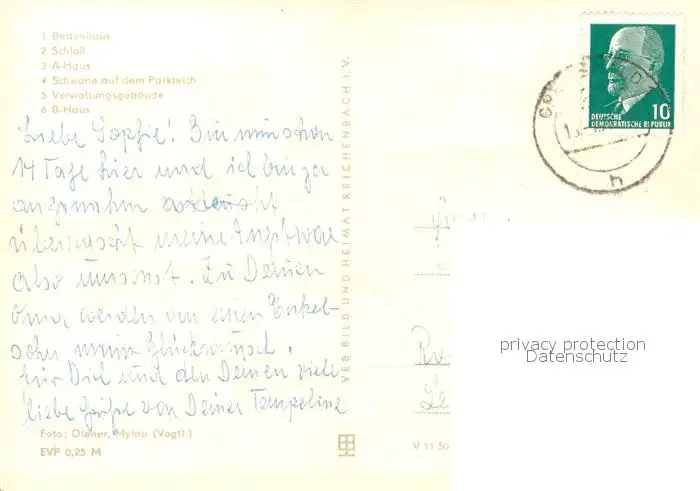 1 Bettenhaus
2 Schloß
3 A-Haus
4 Schwäne auf dem Parkteich
5 Verwaltungsgebäude
6 B-Haus
Liebe Sophie! Bin nun schon
14 Tage hier und ich bin ja
angenehm
überrascht meine Angst war
also umsonst. Zu Deinen
Oma, werden von einen Enkel-
sohn meine Glückwunsch.
für Dich und den Deinen viele
liebe Grüße von Deiner
Foto: Diener, Mylau (Vogtl.)
EVP 0,25 M
VEB BILD UND HEIMAT REICHENBACH I. V.
V 11 50
10
DEUTSCHE
DEMOKRATISCHE REPUBLIK
h
privacy protection
Datenschutz